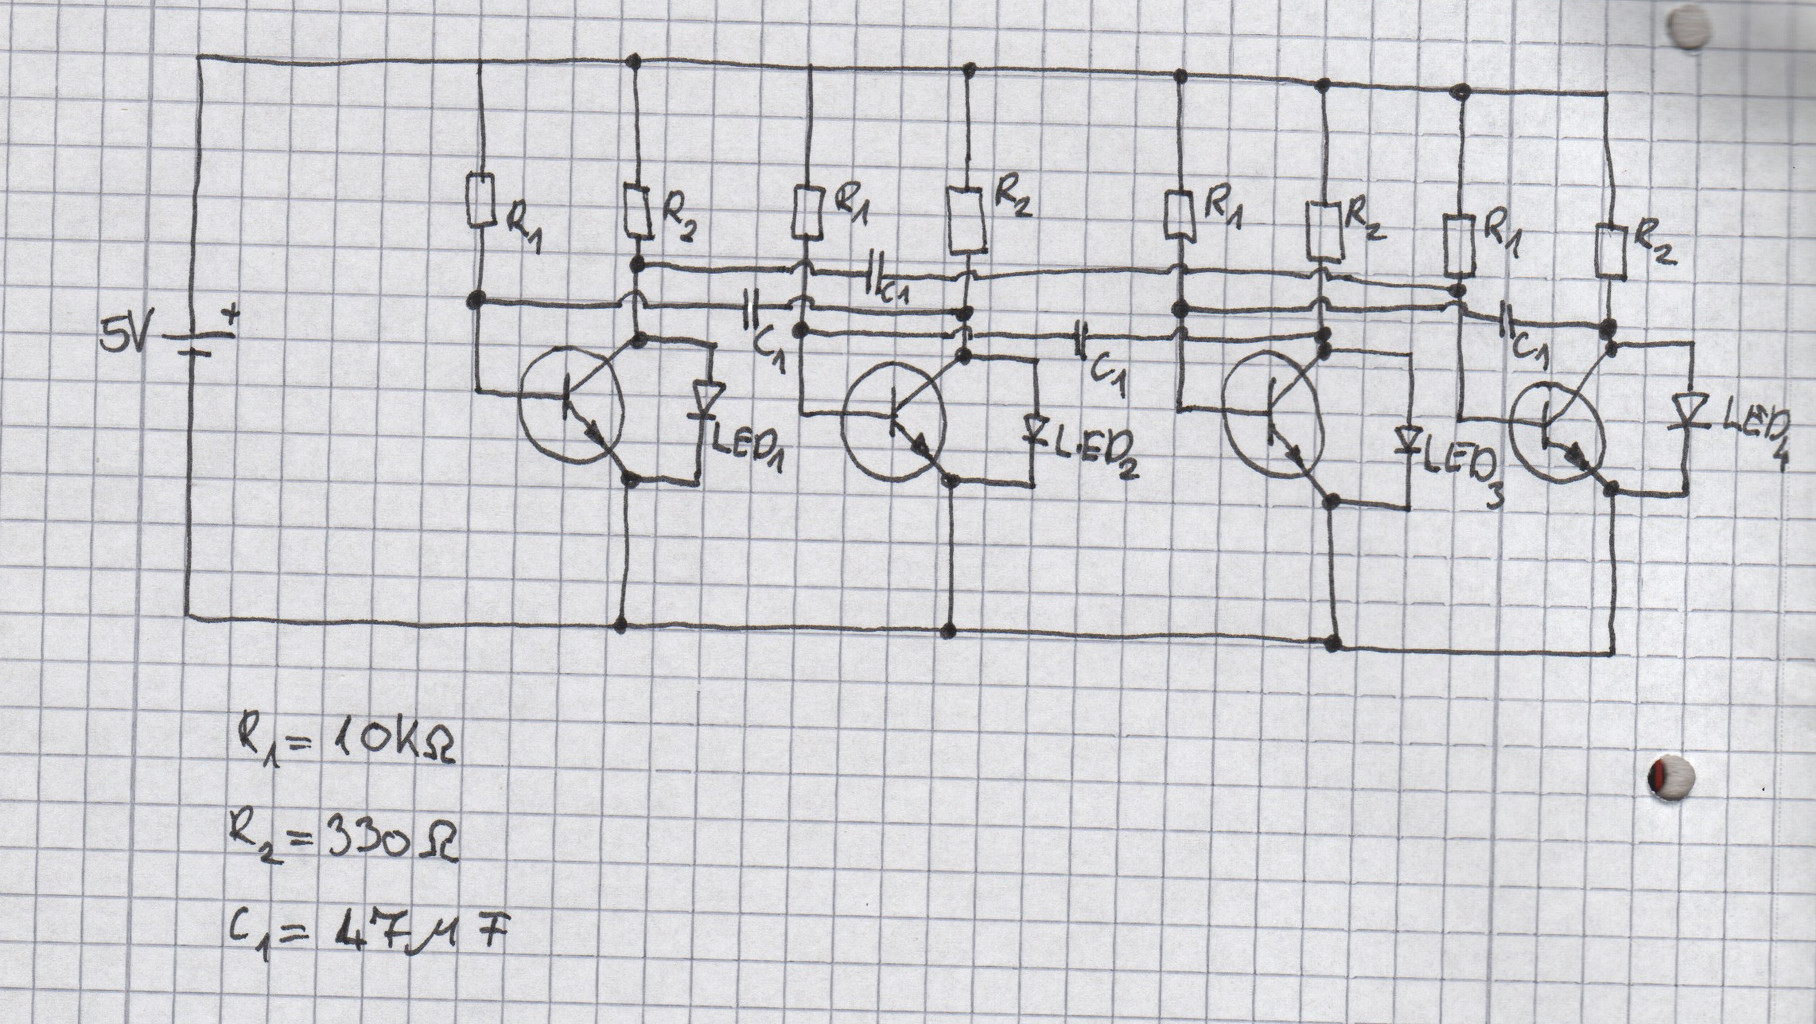 R₁ R₂ R₁ R₂ R₁ R₂ R₁ R₂
C1
5V +
C₁ C₁ C₁
LED₁ LED₂ LED₃ LED₄
R₁ = 10KΩ
R₂ = 330Ω
C₁ = 47μF